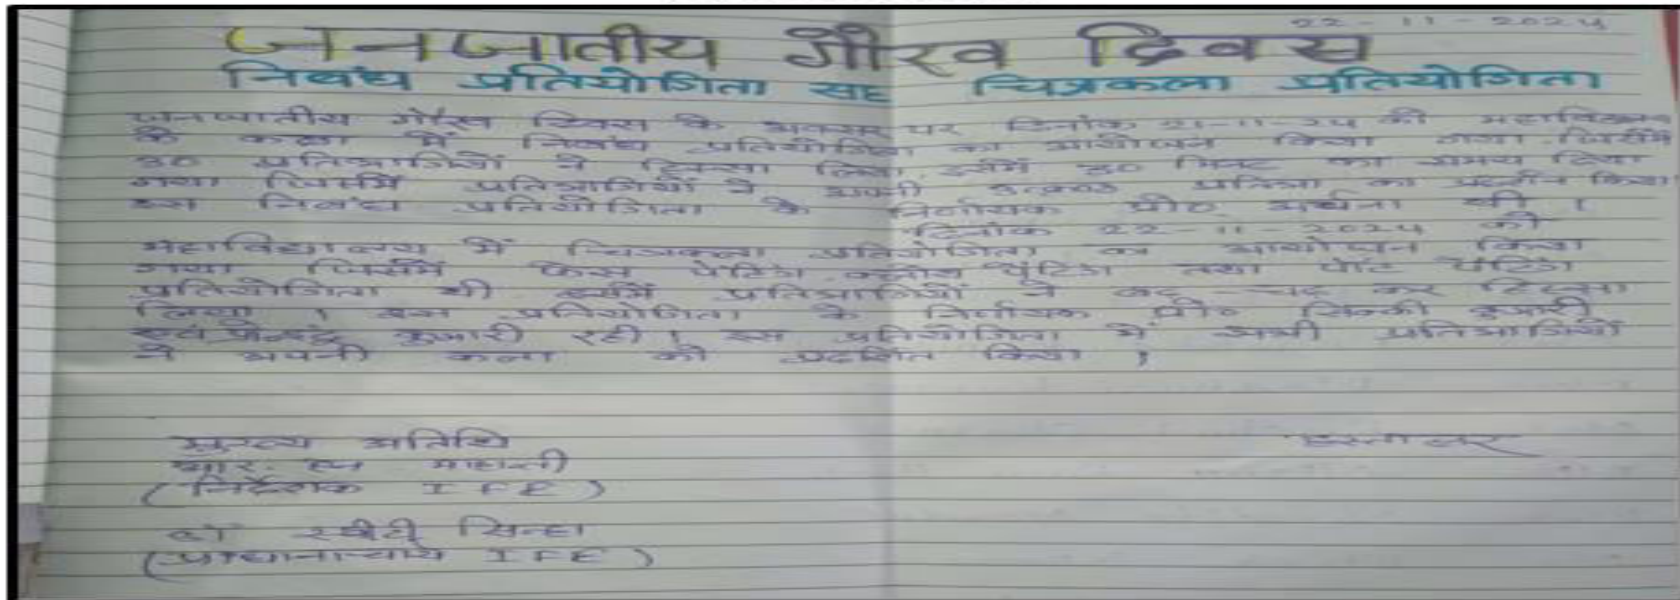 22-11-2024
जनजातीय गौरव दिवस
निबंध प्रतियोगिता सह चित्रकला प्रतियोगिता
जनजातीय गौरव दिवस के अवसर पर दिनांक 21-11-24 को महाविद्यालय
के कक्षा में निबंध प्रतियोगिता का आयोजन किया गया जिसमें
30 प्रतिभागियों ने हिस्सा लिया इसमें 30 मिनट का समय दिया
गया जिसमें प्रतिभागियों ने अपनी प्रतिभा का प्रदर्शन किया
इस निबंध प्रतियोगिता के निर्णायक प्रो० अर्चना थी ।
दिनांक 22-11-2024 को
महाविद्यालय में चित्रकला प्रतियोगिता का आयोजन किया
गया जिसमें फेस पेंटिंग पेंटिंग तथा पॉट पेंटिंग
प्रतियोगिता थी इसमें प्रतिभागियों ने बढ़-चढ़ कर हिस्सा
लिया । इस प्रतियोगिता के निर्णायक प्रो० कुमारी
एवं कुमारी रही । इस प्रतियोगिता में सभी प्रतिभागियों
ने अपनी कला को प्रदर्शित किया ।
मुख्य अतिथि
आर. एन महान्ती
(निर्देशक IFE)
डॉ स्वीटी सिन्हा
(प्राधानाचार्य IFE)
हस्ताक्षर